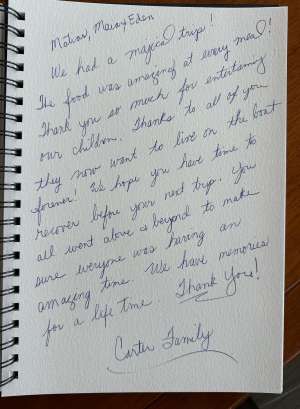 Matias, Maia & Eden
We had a magical trip!
The food was amazing at every meal!
Thank you so much for entertaining
our children. Thanks to all of you
they now want to live on the boat
forever! We hope you have time to
recover before your next trip. You
all went above & beyond to make
sure everyone was having an
amazing time. We have memories
for a life time. Thank You!
Carter Family